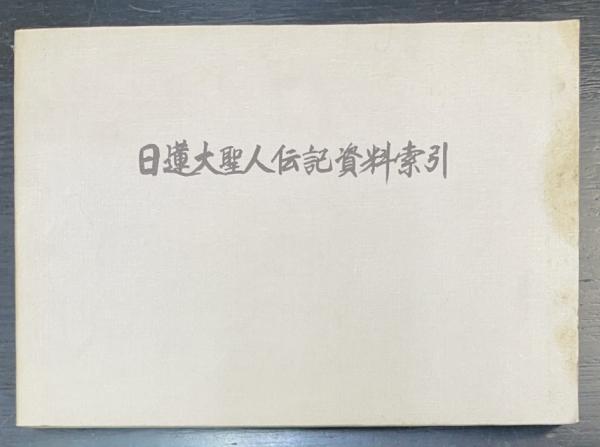 日蓮大聖人伝記資料索引